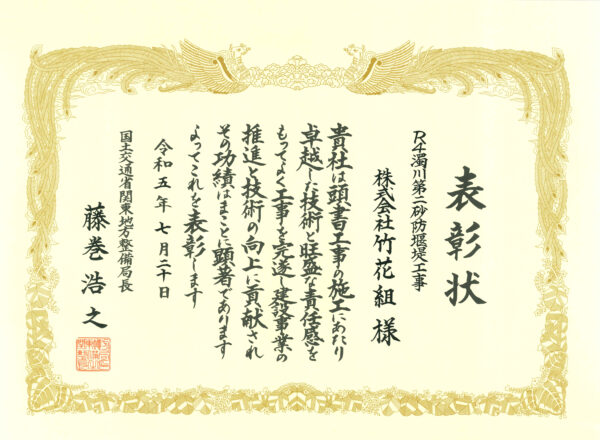 表彰状
R4濁川第二砂防堰堤工事
株式会社竹花組様
貴社は頭書工事の施工にあたり
卓越した技術と旺盛な責任感を
もってよく工事を完遂し建設事業の
推進と技術の向上に貢献され
その功績はまことに顕著であります
よってこれを表彰します
令和五年七月二十日
国土交通省関東地方整備局長
藤巻浩之